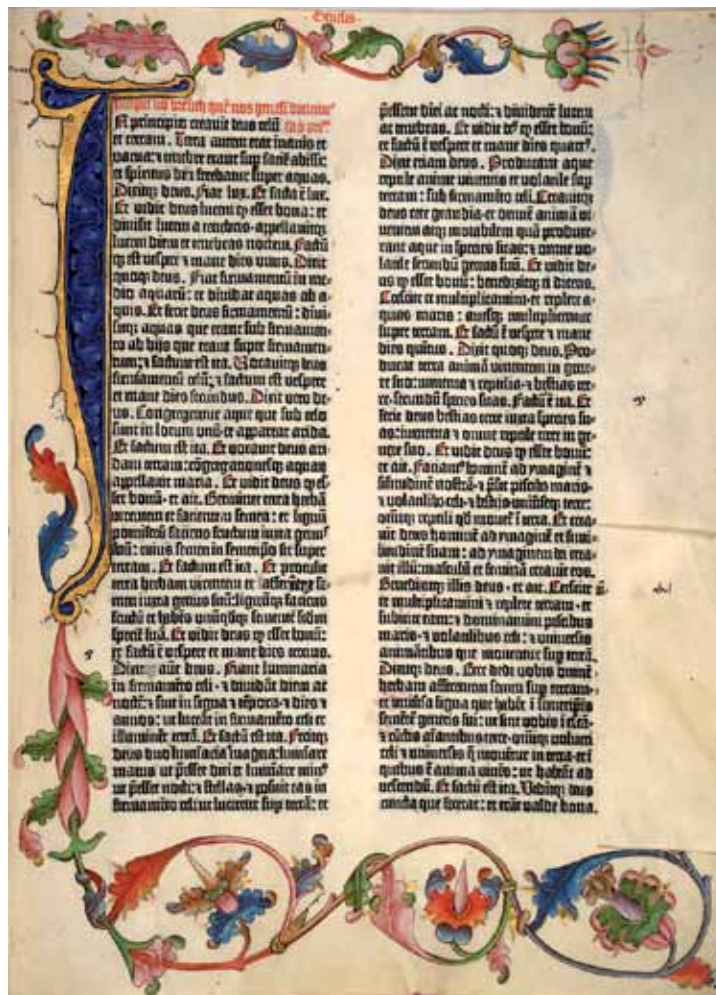 Genesis
Incipit liber bresith quē nos genesim dicimus
IN principio creavit deus celū
et terram. Terra autem erat inanis et
vacua: et tenebre erāt sup faciē abissi:
et spiritus dñi ferebatur super aquas.
Dixitqȝ deus. Fiat lux. Et facta ē lux.
Et vidit deus lucem qȝ esset bona: et
divisit lucem a tenebris-appellavitqȝ
lucem diem et tenebras noctem. Factūqȝ
est vespe et mane dies unus. Dixit
quoqȝ deus. Fiat firmamentū in me-
dio aquarū: et dividat aquas ab a-
quis. Et fecit deus firmamentū: divi-
sitqȝ aquas que erant sub firmamen-
to ab hijs que erant super firmamen-
tum: et factum est ita. Vocavitqȝ deus
firmamentū celū: et factum est vespere
et mane dies secundus. Dixit vero de-
us. Congregentur aque que sub celo
sunt in locum unū et appareat arida.
Et factum est ita. Et vocavit deus ari-
dam terram: cōgregationesqȝ aquarū
appellavit maria. Et vidit deus qȝ es-
set bonū-et ait. Germinet terra herbā
virentem et facientem semen: et lignū
pomiferū faciens fructum iuxta genus
suū: cuius semen in semetipso sit super
terram. Et factum est ita. Et protulit
terra herbam virentem et facientē se-
men iuxta genus suū: lignūqȝ faciens
fructū et habēs unūqdqȝ sementē scdm
speciē suā. Et vidit deus qȝ esset bonū:
et factū ē vespere et mane dies tercius.
Dixit autē deus. Fiant luminaria
in firmamēto celi-et dividāt diem ac
noctē: et sint in signa et tēpora-et dies et
annos: ut luceāt in firmamēto celi et
illuminēt terrā. Et factū est ita. Fecitqȝ
deus duo luminaria magna: luminare
maius ut pesset diei et luminare minus
ut pesset nocti: et stellas-et posuit eas in
firmamēto celi: ut lucerent sup terrā: et
pessent diei ac nocti: et dividerēt lucem
ac tenebras. Et vidit deus qȝ esset bonū:
et factū ē vespere et mane dies quartus.
Dixit etiam deus. Producant aque
reptile anime viventis et volatile sup
terram: sub firmamēto celi. Creavitqȝ
deus cete grandia-et omnē animā vi-
ventem atqȝ motabilem quā produxe-
rant aque in species suas: et omne vo-
latile secundū genus suū. Et vidit de-
us qȝ esset bonū: benedixitqȝ eis dicens.
Crescite et multiplicamini-et replete a-
quas maris: avesqȝ multiplicentur
super terram. Et factū ē vespere et mane
dies quintus. Dixit quoqȝ deus. Pro-
ducat terra animā viventem in gene-
re suo: iumenta et reptilia-et bestias ter-
re secundū species suas. Factūqȝ ē ita. Et
fecit deus bestias terre iuxta species su-
as: iumenta et omne reptile terre in ge-
nere suo. Et vidit deus qȝ esset bonū:
et ait. Faciamus hominē ad ymaginē et
similitudinē nostrā-et presit piscibus maris-
et volatilibus celi-et bestiis universeqȝ terre:
omniqȝ reptili qd movetur i terra. Et crea-
vit deus hominē ad ymaginē et simi-
litudinē suam: ad ymaginem dei crea-
vit illū: masculū et feminā creavit eos.
Benedixitqȝ illis deus-et ait. Crescite
et multiplicamini et replete terram-et
subicite eam: et dominamini piscibus
maris-et volatilibus celi: et universis
animātibus que moventur sup terrā.
Dixitqȝ deus. Ecce dedi vobis omnē
herbam afferentem semen sup terram-
et universa ligna que habēt i semetipsis
sementē generis sui: ut sint vobis i escā-
et cūctis aīantibus terre-omniqȝ volucri
celi et universis q moventur in terra-et i
quibus ē anima vivēs: ut habeāt ad
vescendū. Et factū est ita. Viditqȝ deus
cuncta que fecerat: et erāt valde bona.